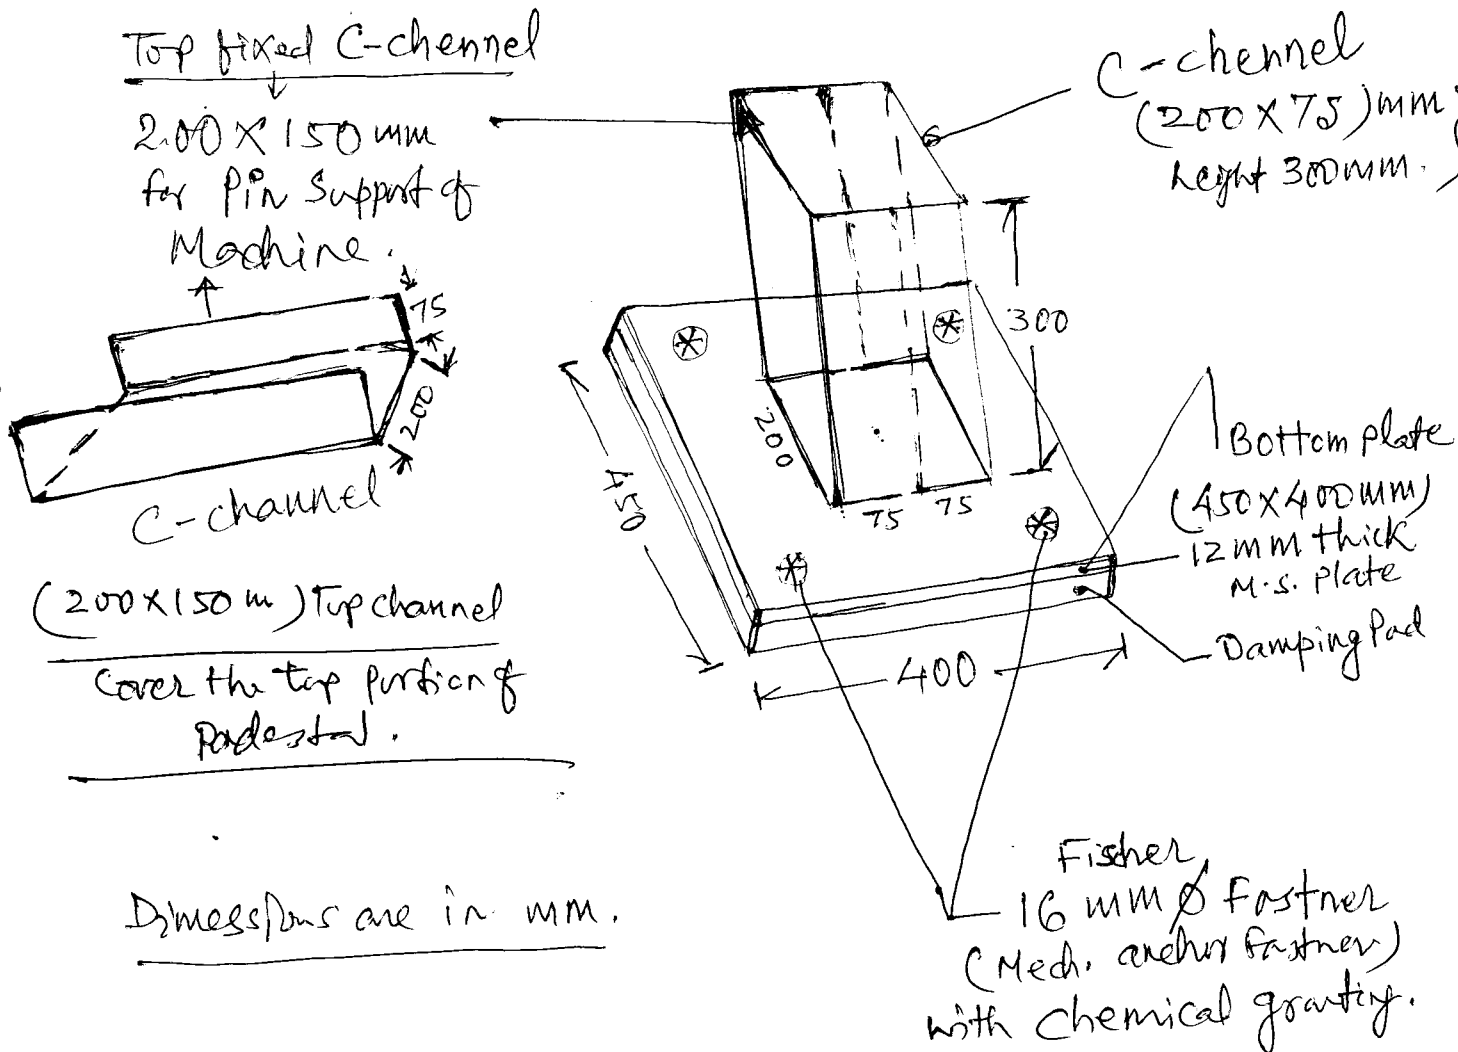 Top fixed C-chennel
200 X 150 mm
for Pin Support of
Machine.
75
200
C-channel
(200X150 m) Top channel
Cover the top portion of
Padestal.
Dimessions are in mm.
C-chennel
(200 X 75) mm
height 300mm.
300
200
450
75 75
400
Bottom plate
(450X400mm)
12mm thick
M.S. plate
Damping Pad
Fischer
16 mm Ø Fastner
(Mech. anchor fastner)
with Chemical grouting.